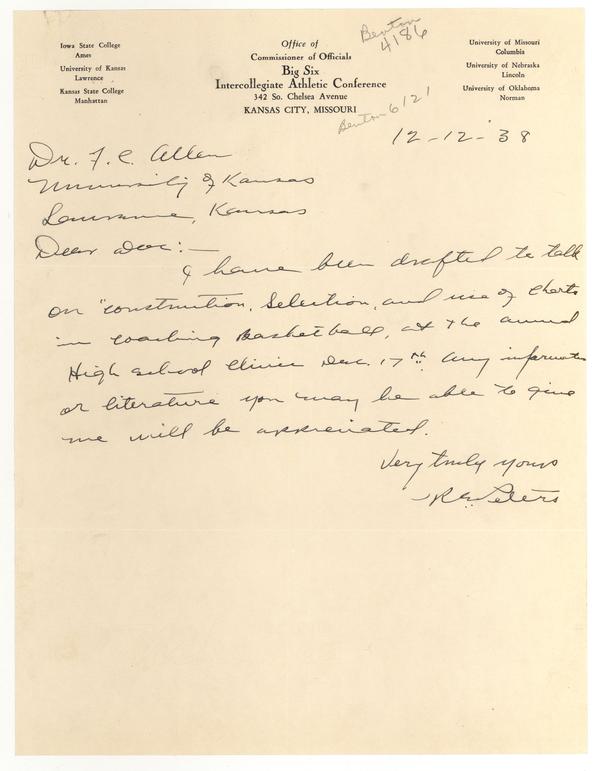 Iowa State College
Ames
University of Kansas
Lawrence
Kansas State College
Manhattan
Office of
Commissioner of Officials
Big Six
Intercollegiate Athletic Conference
342 So. Chelsea Avenue
KANSAS CITY, MISSOURI
University of Missouri
Columbia
University of Nebraska
Lincoln
University of Oklahoma
Norman
Benton
4186
Benton 6121
12-12-38
Dr. F. C. Allen
University of Kansas
Lawrence, Kansas
Dear Doc:—
I have been drafted to talk
on "construction, selection, and use of charts
in coaching basketball, at the annual
High school clinic Dec. 17th. Any information
or literature you may be able to give
me will be appreciated.
Very truly yours
Peters